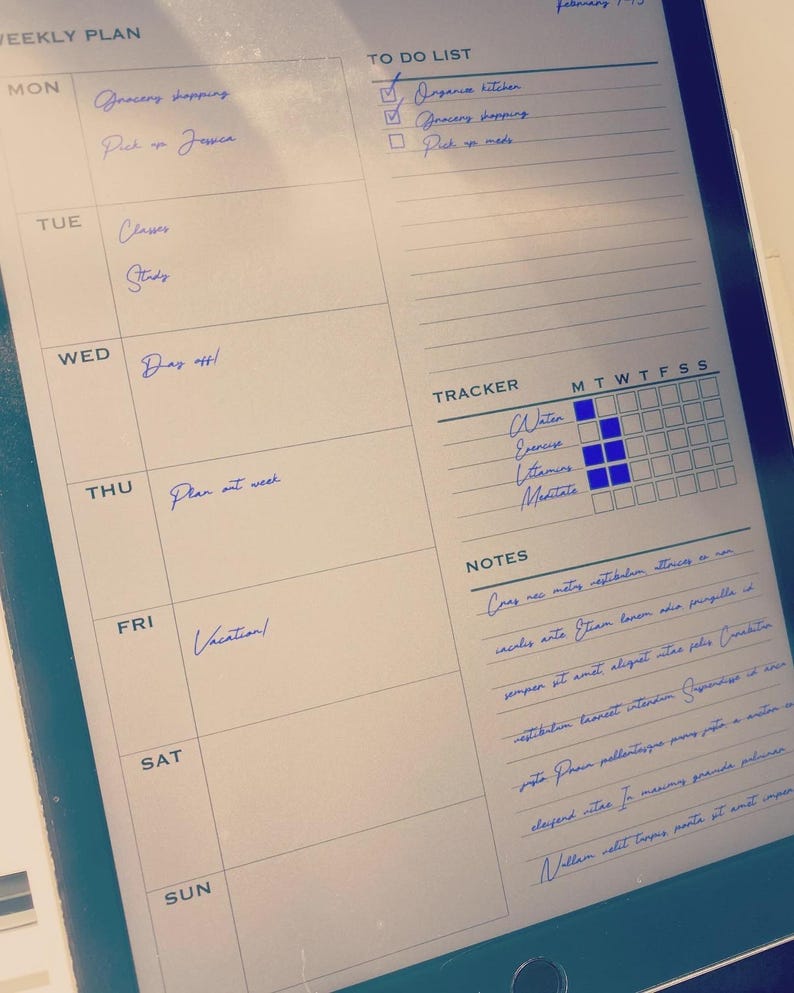 WEEKLY PLAN
MON
Grocery shopping
Pick up Jessica
TUE
Classes
Study
WED
Day off!
THU
Plan out week
FRI
Vacation!
SAT
SUN
February
TO DO LIST
Organize kitchen
Grocery shopping
Pick up meds
TRACKER
M T W T F S S
Water
Exercise
Vitamins
Meditate
NOTES
Cras nec metus vestibulum, ultrices ex non,
iaculis ante. Etiam lorem odio, fringilla id
semper sit amet, aliquet vitae felis. Curabitur
vestibulum laoreet interdum. Suspendisse id arcu
justo. Proin pellentesque purus justo, a auctor ex
eleifend vitae. In maximus gravida pulvinar.
Nullam velit turpis, porta sit amet